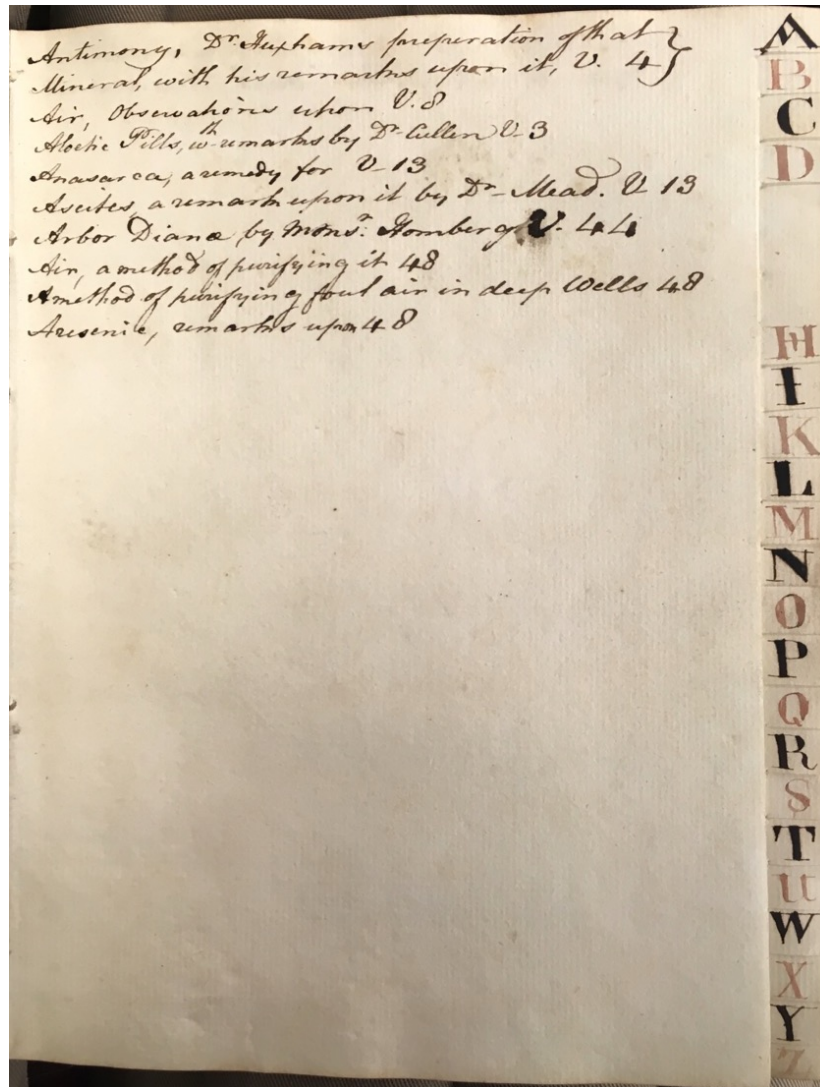 Antimony, Dr. Huxhams preparation of that
Mineral, with his remarks upon it, V. 4
Air, Observations upon V. 8
Aloetic Pills, wth remarks by Dr. Cullen V- 3
Anasarca, a remedy for V- 13
Ascites, a remark upon it by Dr- Mead. V 13
Arbor Dianæ, by Monsr. Homberg V. 44
Air, a method of purifying it 48
A method of purifying foul air in deep Wells 48
Arsenic, remarks upon 48
A
B
C
D
H
I
K
L
M
N
O
P
Q
R
S
T
U
W
X
Y
Z